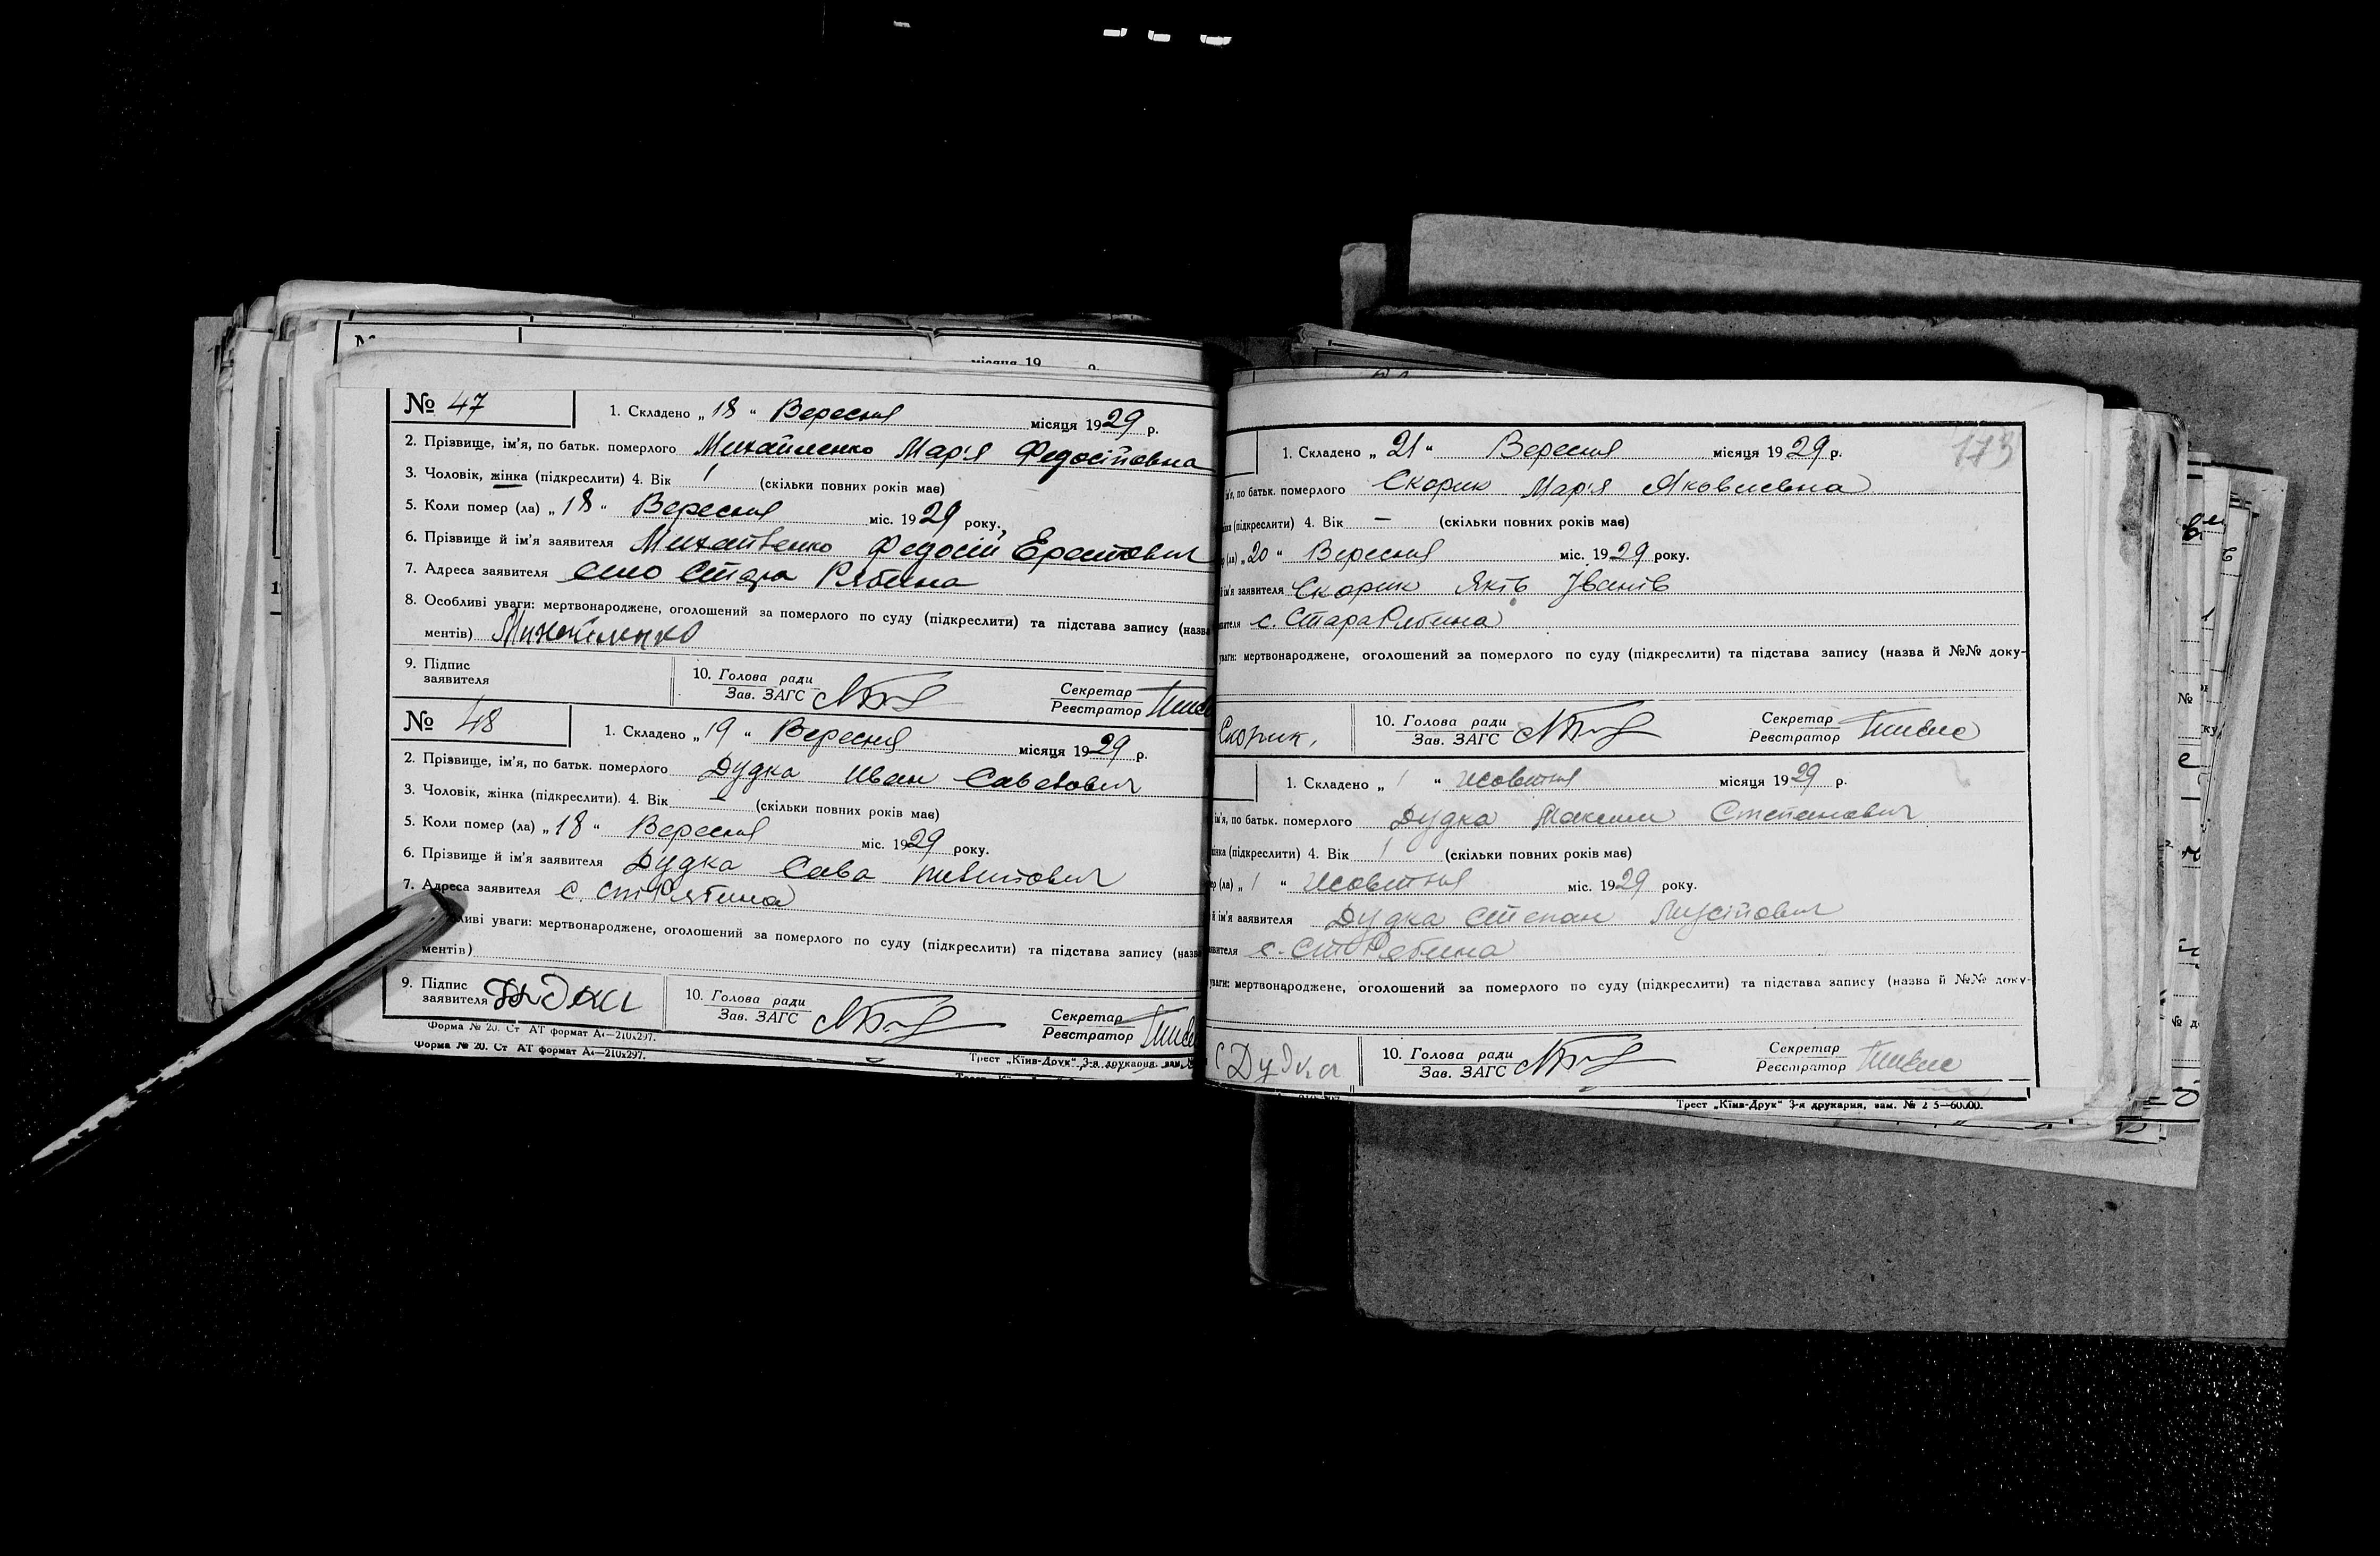 місяця 19 р.
№ 47
1. Складено „ 18 “ Вересня місяця 1929 р.
2. Прізвище, ім'я, по батьк. померлого Михайленко Мар'я Федосіївна
3. Чоловік, жінка (підкреслити) 4. Вік 1 (скільки повних років має)
5. Коли помер (ла) „ 18 “ Вересня міс. 1929 року.
6. Прізвище й ім'я заявителя Федосій
7. Адреса заявителя Стара Рябина
8. Особливі уваги: мертвонароджене, оголошений за померлого по суду (підкреслити) та підстава запису (назва
ментів)
9. Підпис
заявителя
10. Голова ради
Зав. ЗАГС
Секретар
Реєстратор
№ 48
1. Складено „ 19 “ Вересня місяця 1929 р.
2. Прізвище, ім'я, по батьк. померлого Дудка Иван Саветович
3. Чоловік, жінка (підкреслити). 4. Вік – (скільки повних років має)
5. Коли помер (ла) „ 18 “ Вересня міс. 1929 року.
6. Прізвище й ім'я заявителя Дудка Сава
7. Адреса заявителя С. Ст Рябина
ливі уваги: мертвонароджене, оголошений за померлого по суду (підкреслити) та підстава запису (назва
ментів)
9. Підпис
заявителя
10. Голова ради
Зав. ЗАГС
Секретар
Реєстратор
Форма № 20. Ст АТ формат А4—210х297.
Форма № 20. Ст АТ формат А4—210х297.
Трест „Київ-Друк“ 3-я друкарня. зам.
173
1. Складено „ 21 “ Вересня місяця 1929 р.
м'я, по батьк. померлого Скорик Мар'я Яковлевна
інка (підкреслити) 4. Вік – (скільки повних років має)
р (ла) „ 20 “ Вересня міс. 1929 року.
й ім'я заявителя Скорик Яків Іванів
вителя с. Стара Рябина
уваги: мертвонароджене, оголошений за померлого по суду (підкреслити) та підстава запису (назва й №№ доку-
Скорик.
10. Голова ради
Зав. ЗАГС
Секретар
Реєстратор
1. Складено „ 1 “ Жовтня місяця 1929 р.
ім'я, по батьк. померлого Дудка Максим Степанович
жінка (підкреслити) 4. Вік 1 (скільки повних років має)
ер (ла) „ 1 “ Жовтня міс. 1929 року.
й ім'я заявителя Дудка Степан
явителя с. Ст Рябина
уваги: мертвонароджене, оголошений за померлого по суду (підкреслити) та підстава запису (назва й №№ доку-
С Дудка
10. Голова ради
Зав. ЗАГС
Секретар
Реєстратор
Трест „Київ-Друк“ 3-я друкарня, зам.